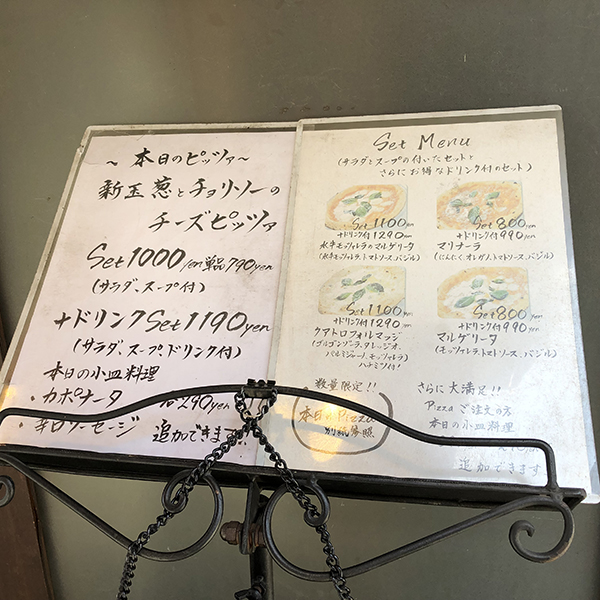 ～本日のピッツァ～
新玉葱とチョリソーの
チーズピッツァ
Set 1000yen 単品790yen
(サラダ、スープ付)
+ドリンクSet 1190yen
(サラダ、スープ、ドリンク付)
本日の小皿料理
・カポナータ
290yen
・辛口ソーセージ
追加できます!!
Set Menu
(サラダとスープの付いたセットと
さらにお得なドリンク付のセット)
Set 1100yen
+ドリンク付1290yen
水牛モッツァレラのマルゲリータ
(水牛モッツァレラ、トマトソース、バジル)
Set 800yen
+ドリンク付990yen
マリナーラ
(にんにく、オレガノ、トマトソース、バジル)
Set 1100yen
+ドリンク付1290yen
クアトロフォルマッジ
(ゴルゴンゾーラ、タレッジオ、
パルミジャーノ、モッツァレラ)
ハチミツ付!
Set 800yen
+ドリンク付990yen
マルゲリータ
(モッツァレラ、トマトソース、バジル)
数量限定!!
本日のPizza
別紙参照
さらに大満足!!
Pizzaご注文の方
本日の小皿料理
追加できます